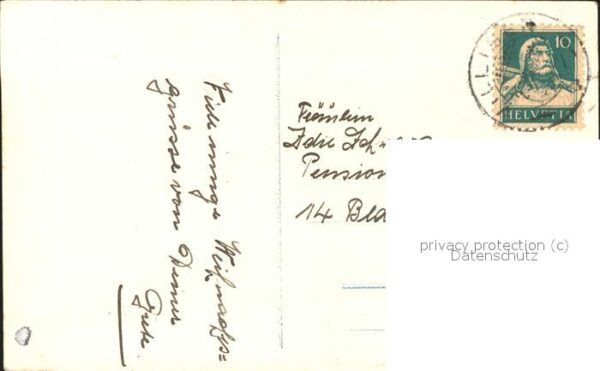 Viele innige Weihnachts=
grüsse von Deiner
Grete.
Fräulein
Pension
14
10
HELVETIA
privacy protection (c)
Datenschutz